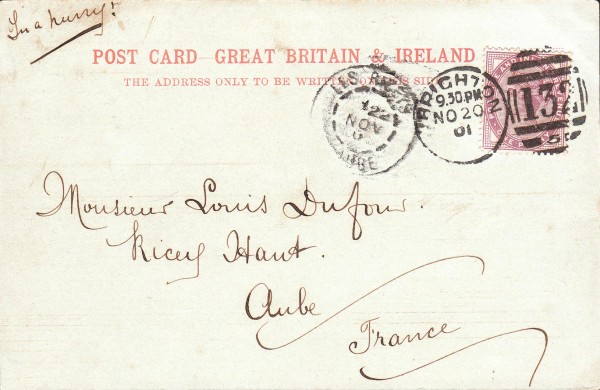 In a hurry!
POST CARD GREAT BRITAIN & IRELAND
THE ADDRESS ONLY TO BE WRITTEN ON THIS SIDE
LES RICEYS
22
NOV
AUBE
BRIGHTON
9.30.PM
NO 20
01
132
5
Monsieur Louis Dufour.
Ricey Haut.
Aube
France